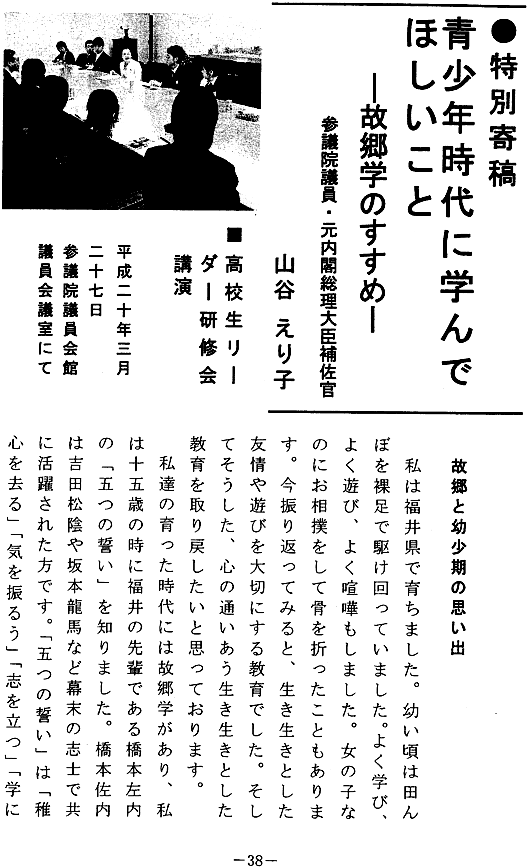 ●特別寄稿
青少年時代に学んで
ほしいこと
―故郷学のすすめ―
参議院議員・元内閣総理大臣補佐官
山谷 えり子
■高校生リー
ダー研修会
講演
平成二十年三月
二十七日
参議院議員会館
議員会議室にて
故郷と幼少期の思い出
私は福井県で育ちました。幼い頃は田ん
ぼを裸足で駆け回っていました。よく学び、
よく遊び、よく喧嘩もしました。女の子な
のにお相撲をして骨を折ったこともありま
す。今振り返ってみると、生き生きとした
友情や遊びを大切にする教育でした。そし
てそうした、心の通いあう生き生きとした
教育を取り戻したいと思っております。
私達の育った時代には故郷学があり、私
は十五歳の時に福井の先輩である橋本左内
の「五つの誓い」を知りました。橋本佐内
は吉田松陰や坂本龍馬など幕末の志士で共
に活躍された方です。「五つの誓い」は「稚
心を去る」「気を振るう」「志を立つ」「学に
―38―